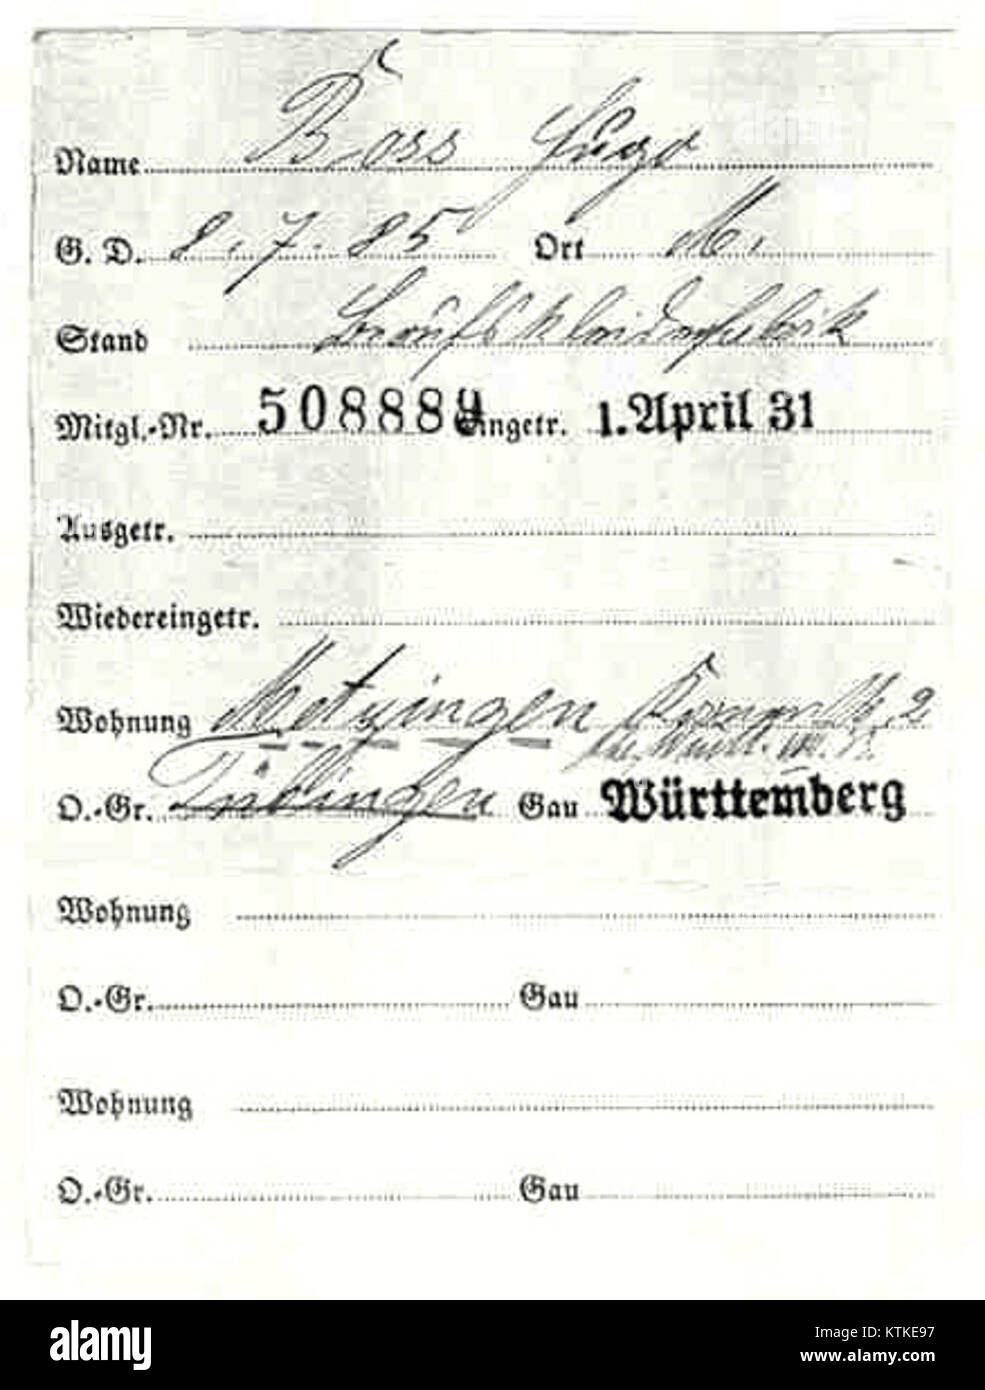 Name Boss Hugo
G. D. 8.7.85 Ort M.
Stand Berufskleiderfabrik
Mitgl.-Nr. 508889 Eingetr. 1. April 31
Ausgetr.
Wiedereingetr.
Wohnung Metzingen 2
O.-Gr. Tüblingen Gau Württemberg
Wohnung
O.-Gr. Gau
Wohnung
O.-Gr. Gau
alamy
Image ID: KTKE97
www.alamy.com